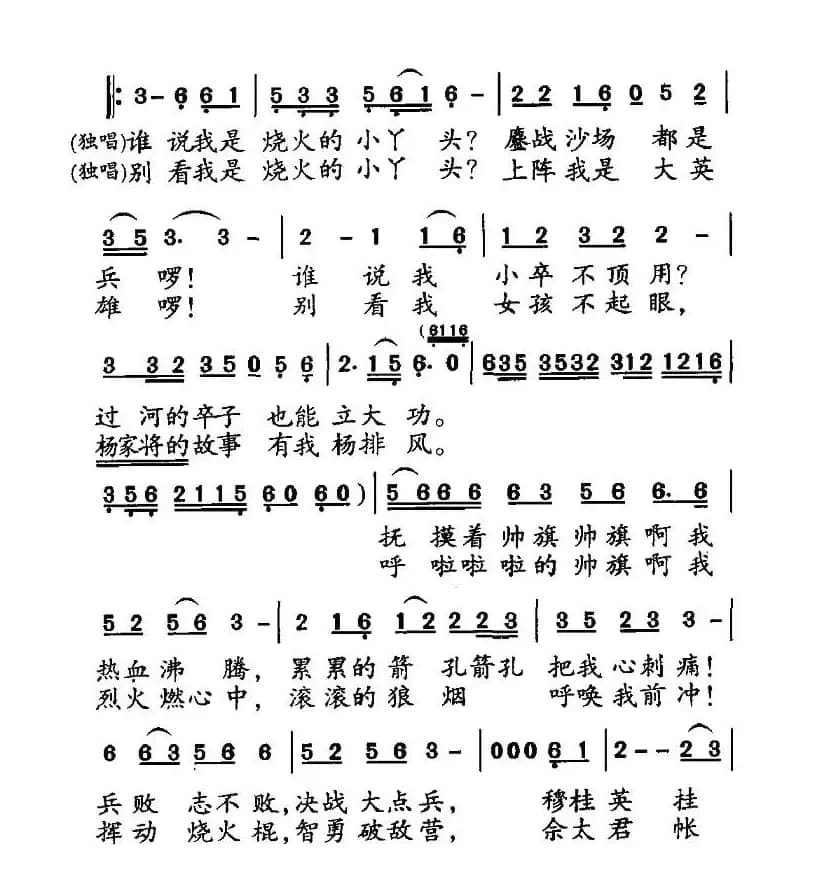 3 - 6 6 1 | 5 3 3 5 6 1 6 - | 2 2 1 6 0 5 2 |
(独唱)谁 说我是 烧火的 小丫 头? 鏖战沙场 都是
(独唱)别 看我是 烧火的 小丫 头? 上阵我是 大英
3 5 3. 3 - | 2 - 1 1 6 | 1 2 3 2 2 - |
兵 啰! 谁 说我 小卒不顶用?
雄 啰! 别 看我 女孩不起眼,
(6116
3 3 2 3 5 0 5 6 | 2. 1 5 6. 0 | 635 3532 312 1216 |
过 河的卒子 也能 立大 功。
杨家将的故事 有我 杨排 风。
3 5 6 2 1 1 5 6 0 6 0 ) | 5 6 6 6 6 3 5 6 6. 6 |
抚 摸着帅旗帅旗啊我
呼 啦啦啦的帅旗啊我
5 2 5 6 3 - | 2 1 6 1 2 2 2 3 | 3 5 2 3 3 - |
热血沸 腾, 累 累的箭 孔箭孔 把我心刺痛!
烈火燃心中, 滚 滚的狼 烟 呼唤我前冲!
6 6 3 5 6 6 | 5 2 5 6 3 - | 0 0 0 6 1 | 2 - - 2 3 |
兵败 志不败,决战大点兵, 穆桂英 挂
挥动 烧火棍,智勇破敌营, 佘太君 帐